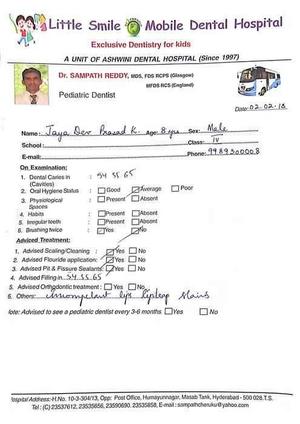 Little Smile Mobile Dental Hospital
Exclusive Dentistry for kids
A UNIT OF ASHWINI DENTAL HOSPITAL (Since 1997)
Dr. SAMPATH REDDY, MDS, FDS RCPS (Glasgow)
MFDS RCS (England)
Pediatric Dentist
Date: 02.02.18
Name: Jaya Dev Prasad K. Age: 8 yrs Sex: Male
School: Class: IV
E-mail: Phone: 9989300008
On Examination:
1. Dental Caries in (Cavities) : 54 55 65
2. Oral Hygiene Status : Good Average Poor
3. Physiological Spaces : Present Absent
4. Habits : Present Absent
5. Irregular teeth : Present Absent
6. Brushing twice : Yes No
Advised Treatment:
1. Advised Scaling/Cleaning : Yes No
2. Advised Flouride application: Yes No
3. Advised Pit & Fissure Sealants: Yes No
4. Advised Filling in 54, 55, 65
5. Advised Orthodontic treatment : Yes No
6. Others: Incompetent lips Stains
Note: Advised to see a pediatric dentist every 3-6 months Yes No
Hospital Address:-H.No. 10-3-304/13, Opp: Post Office, Humayunnagar, Masab Tank, Hyderabad - 500 028.T.S.
Tel: (C) 23537612, 23535656, 23590690, 23535858, E-mail: sampathcheruku@yahoo.com